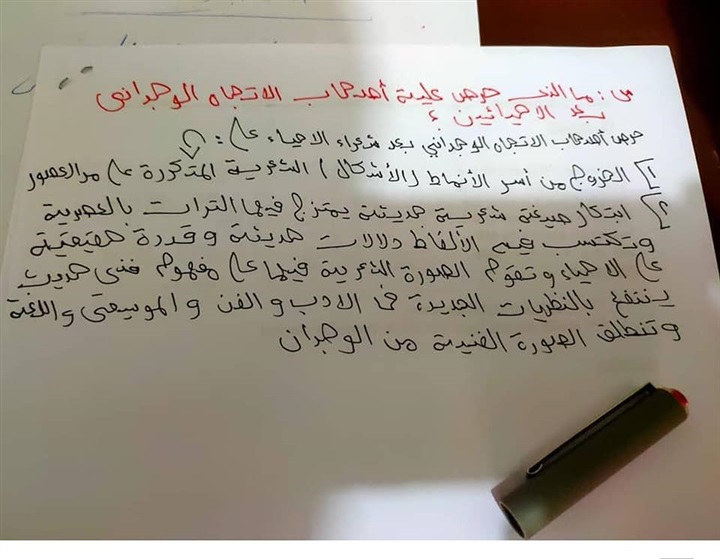 س: ما الذى حرص عليه أصحاب الاتجاه الوجدانى
بعد الاحيائيين ؟
حرص أصحاب الاتجاه الوجدانى بعد شعراء الاحياء على :
1 الخروج من أسر الأنماط (الأشكال) الشعرية المتكررة على مر العصور
2 ابتكار صيغة شعرية حديثة يمتزج فيها التراث بالعصرية
وتكتسب فيه الألفاظ دلالات حديثة وقدرة حقيقية
على الاحياء وتقوم الصورة الشعرية فيها على مفهوم فنى حديث
ينتفع بالنظريات الجديدة فى الادب والفن والموسيقى واللغة
وتنطلق الصورة الفنية من الوجدان